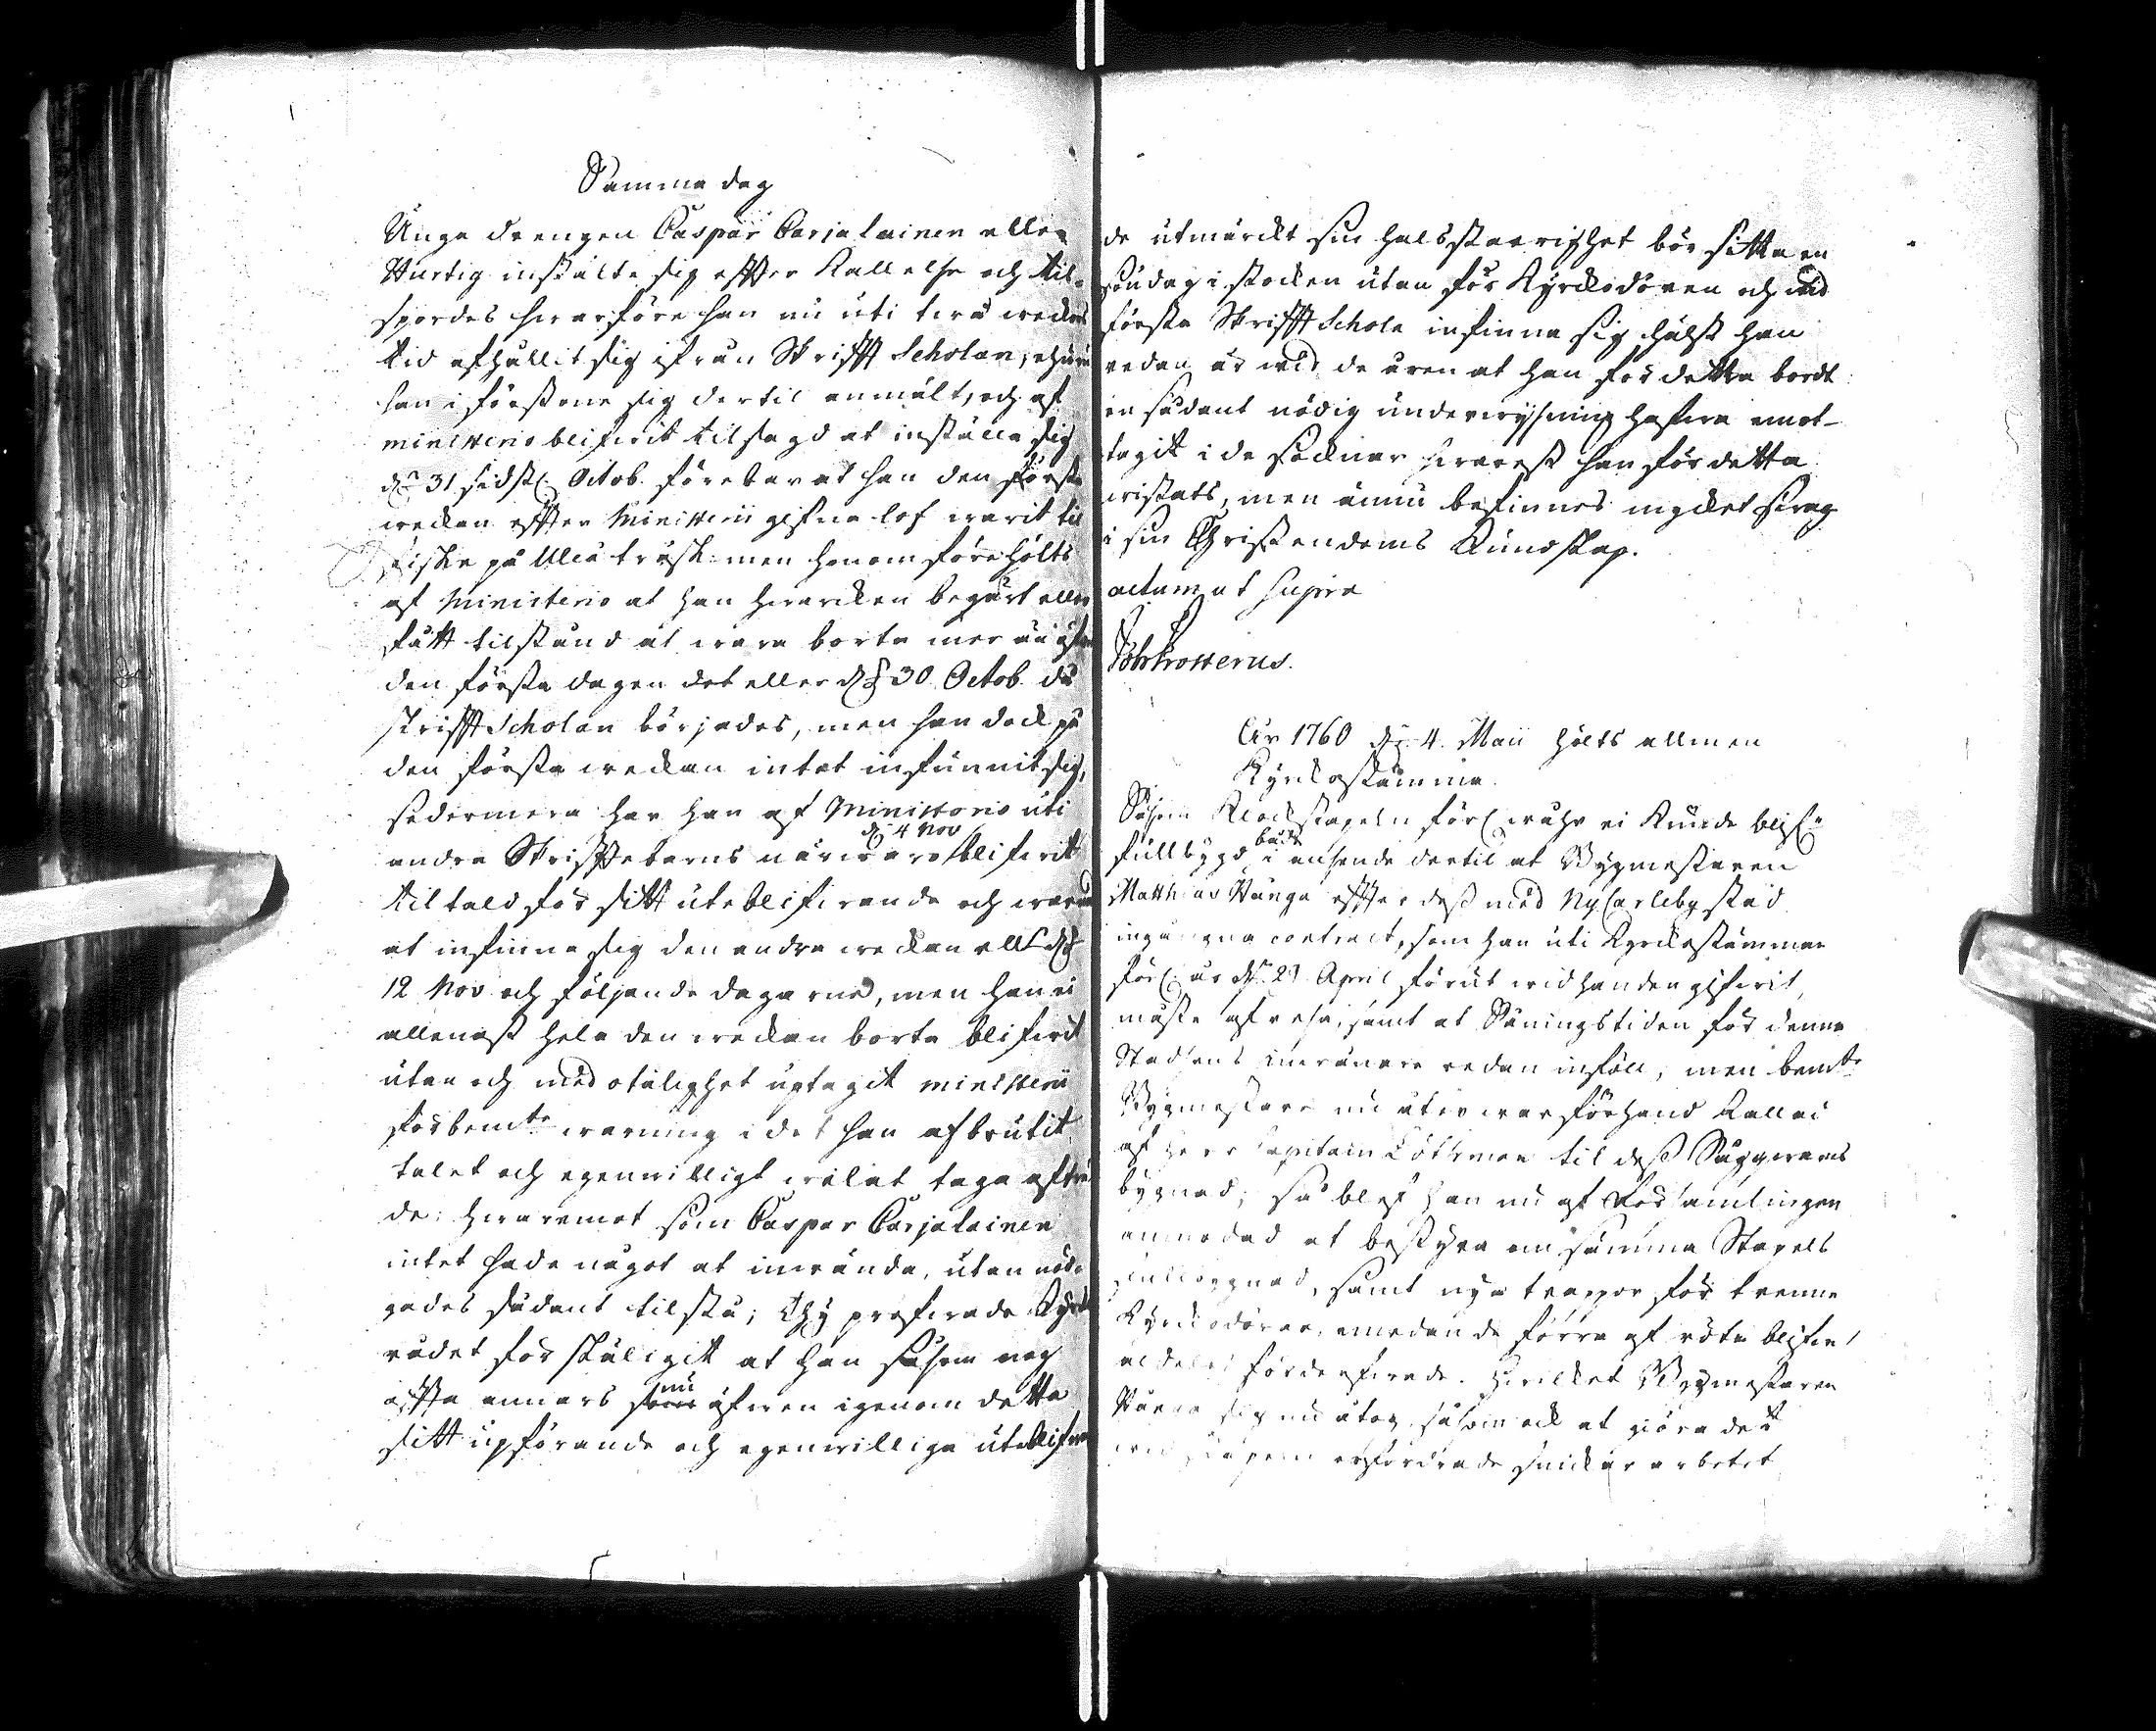 Samma dag
Unga drengen Caspar Carjalainen eller
Hurtig instälte sig effter Kallelse och til-
spordes hwarföre han nu uti twå weckors
tid afhållit sig ifrån Skrifft Scholan, ehuru
han i förstone sig dertil anmält, och af
ministerio blifwit tilsagd at inställa sig
dn 31 sidstl. Octob. förebar at han den första
weckan effter Ministerii gifna lof warit til
fiske på Uleå träsk: men honom förehölts
af Ministerio at han hwarcken begärt eller
fått tilstånd at wara borta mer än öfwer
den första dagen det eller d. 30. Octob. då
skrifft Scholan börjades, men han dock på
den första weckan intet infunnit sig,
sedermera har han af Ministerio uti
d. 4 Nov
andra Skrifftebarns närwaro blifwit
tiltald för sitt uteblifwande och warnad
at infinna sig den andra weckan ell. d.
12 Nov. och följande dagarne, men han ei
allenast hela den weckan borta blifwit
utan och med otålighet uptagit ministerii
förbemte warning i det han afbrutit
talet och egenwilligt welat taga afträ-
de: hwaremot som Caspar Carjalainen
intet hade något at inwända, utan nöd-
gades sådant tilstå; Thy pröfwade Kyrko
rådet för skäligit at han såsom nog
nu
offta annars som äfwen igenom detta
sitt upförande och egenwilliga uteblifwan
de utmärckt sin halsstarrighet bör sitta en
söndag i stocken utan för Kyrckodören och wid
första Skrifft Schola infinna sig hälst han
redan är wid de åren at han för detta bordt
en sådant nödig underwysning hafwa emot-
tagit i de socknar hwarest han för detta
wistats, men ännu befinnes mycket swag
i sin Christendoms Kundskap.
actum ut supra

Åhr 1760 d. 4. Maii hölts allmen
Kyrckostämma.
Såsom Klockstapeln förl. åhr ei Kunde blifwa
både
fullbygd i anseende dertil at Bygmestaren
Matthias Hånga effter dess med NyCarleby stad
ingångna contract, som han uti Kyrckostämman
förl. år dn 29 April förut wid handen gifwit,
måste afresa, samt at Såningstiden för denne
Stadsens inwånare redan inföll, men bemte
Bygmestare nu åter war förhand Kallad
af Herr Capitain til dess Sågqwarns
bygnad; så blef han nu af Församlingen
anmodad at bestyra om samma Stapels
fullbygnad, samt nya trappor för trenne
Kyrckodörar, emedan de förra af röta blifwit
aldeles förderfwade. Hwilcket Bygmestaren
Hånga sig nu åtog, såsom ock at giöra det
wid stapeln erfordrade snickar arbetet